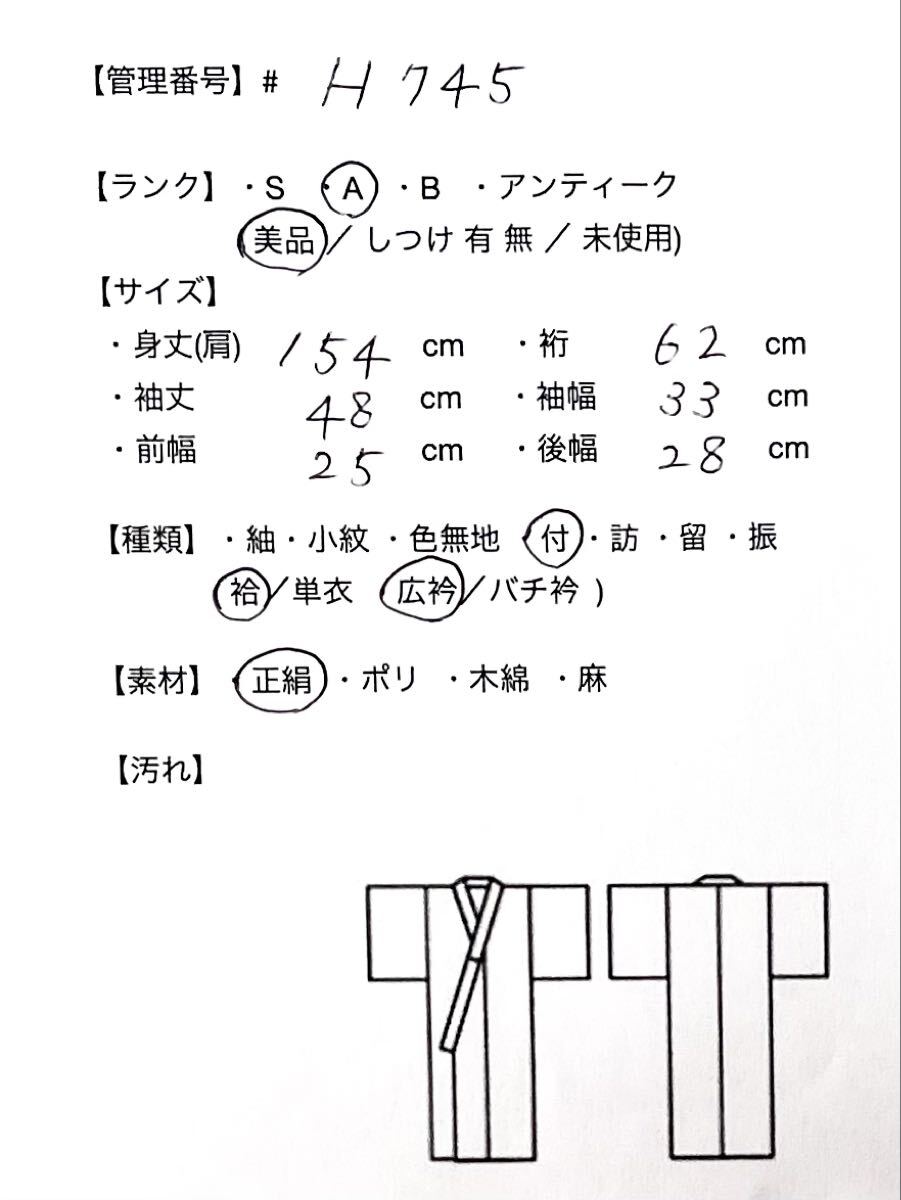 【管理番号】# H745
【ランク】・S ・A ・B ・アンティーク
美品 / しつけ 有 無 / 未使用)
【サイズ】
・身丈(肩) 154 cm ・裄 62 cm
・袖丈 48 cm ・袖幅 33 cm
・前幅 25 cm ・後幅 28 cm
【種類】・紬・小紋 ・色無地 ・付・訪 ・留 ・振
袷/単衣 広衿/バチ衿 )
【素材】・正絹・ポリ ・木綿 ・麻
【汚れ】